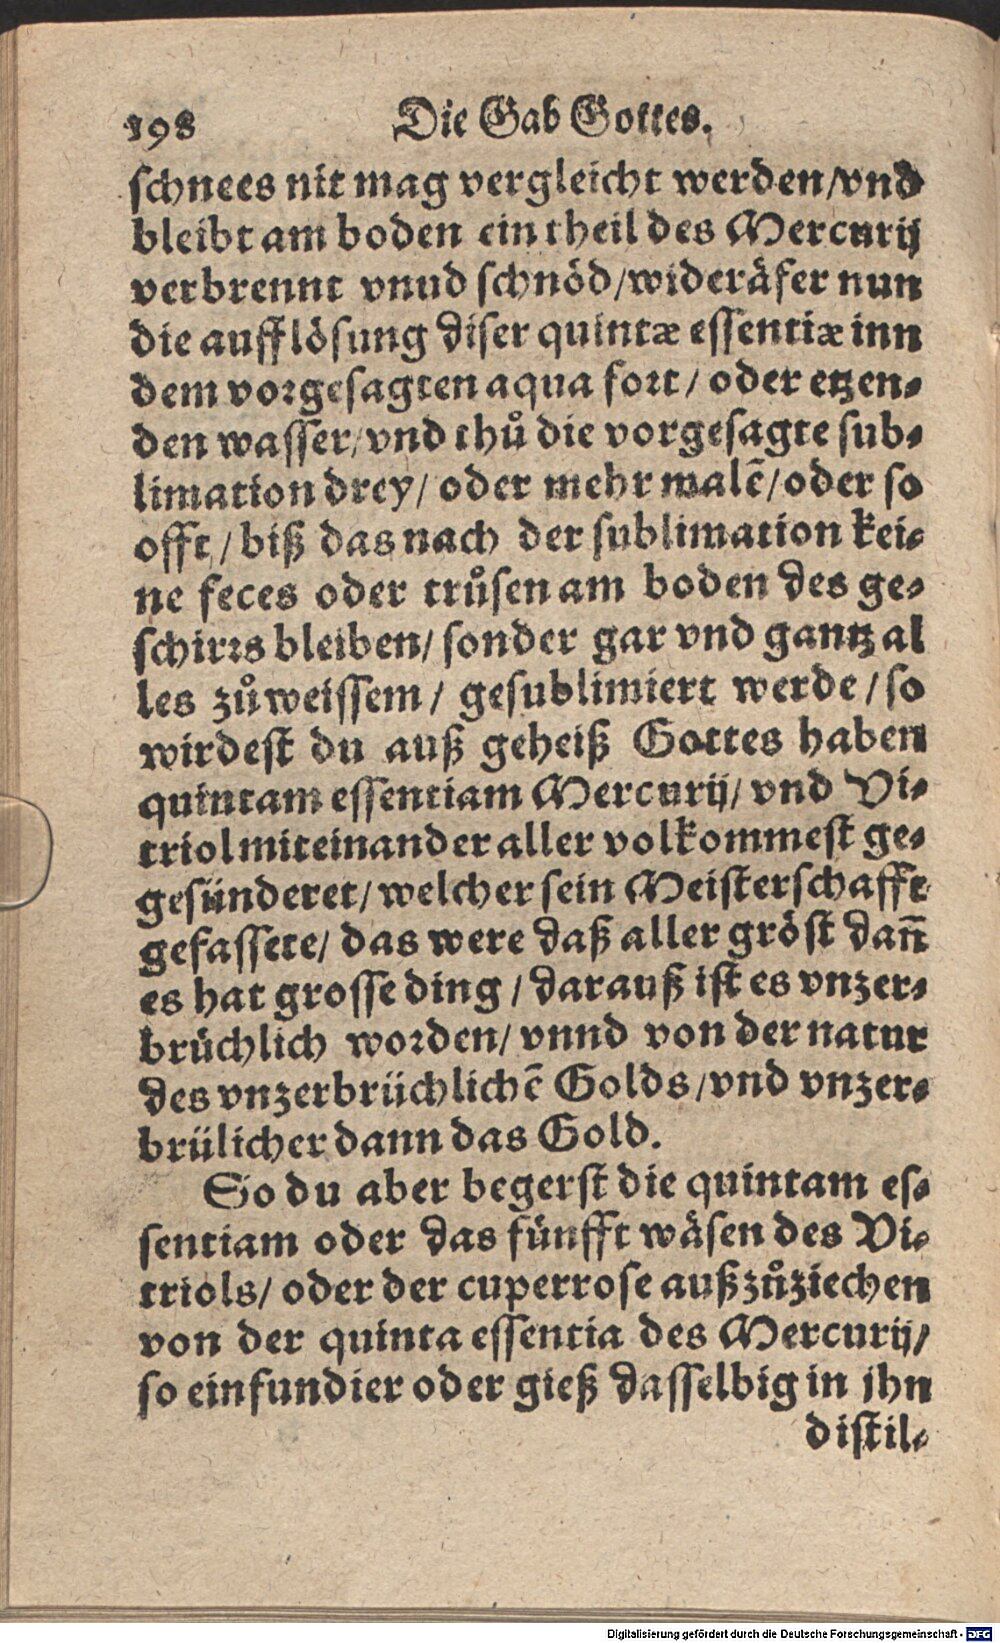 198 Die Gab Gottes.
schnees nit mag vergleicht werden/vnd
bleibt am boden ein theil des Mercurij
verbrennt vnnd schnöd/wideräfer nun
die aufflösung diser quintæ essentiæ inn
dem vorgesagten aqua fort/ oder etzen-
den wasser/vnd thuͦ die vorgesagte sub-
limation drey/ oder mehr malē/oder so
offt/ biß das nach der sublimation kei-
ne feces oder truͦsen am boden des ge-
schirrs bleiben/ sonder gar vnd gantz al
les zuͦ weissem/ gesublimiert werde/ so
wirdest du auß geheiß Gottes haben
quintam essentiam Mercurij/ vnd Vi-
triol miteinander aller volkommest ge-
gesünderet/ welcher sein Meisterschafft
gefassete/ das were daß aller gröst dañ
es hat grosse ding/ darauß ist es vnzer-
brüchlich worden/ vnnd von der natur
des vnzerbrüchlichē Golds/vnd vnzer-
brülicher dann das Gold.
So du aber begerst die quintam es-
sentiam oder das fünfft wäsen des Vi-
triols/ oder der cuperrose außzuͦziechen
von der quinta essentia des Mercurij/
so einfundier oder gieß dasselbig in jhn
distil-
Digitalisierung gefördert durch die Deutsche Forschungsgemeinschaft - DFG